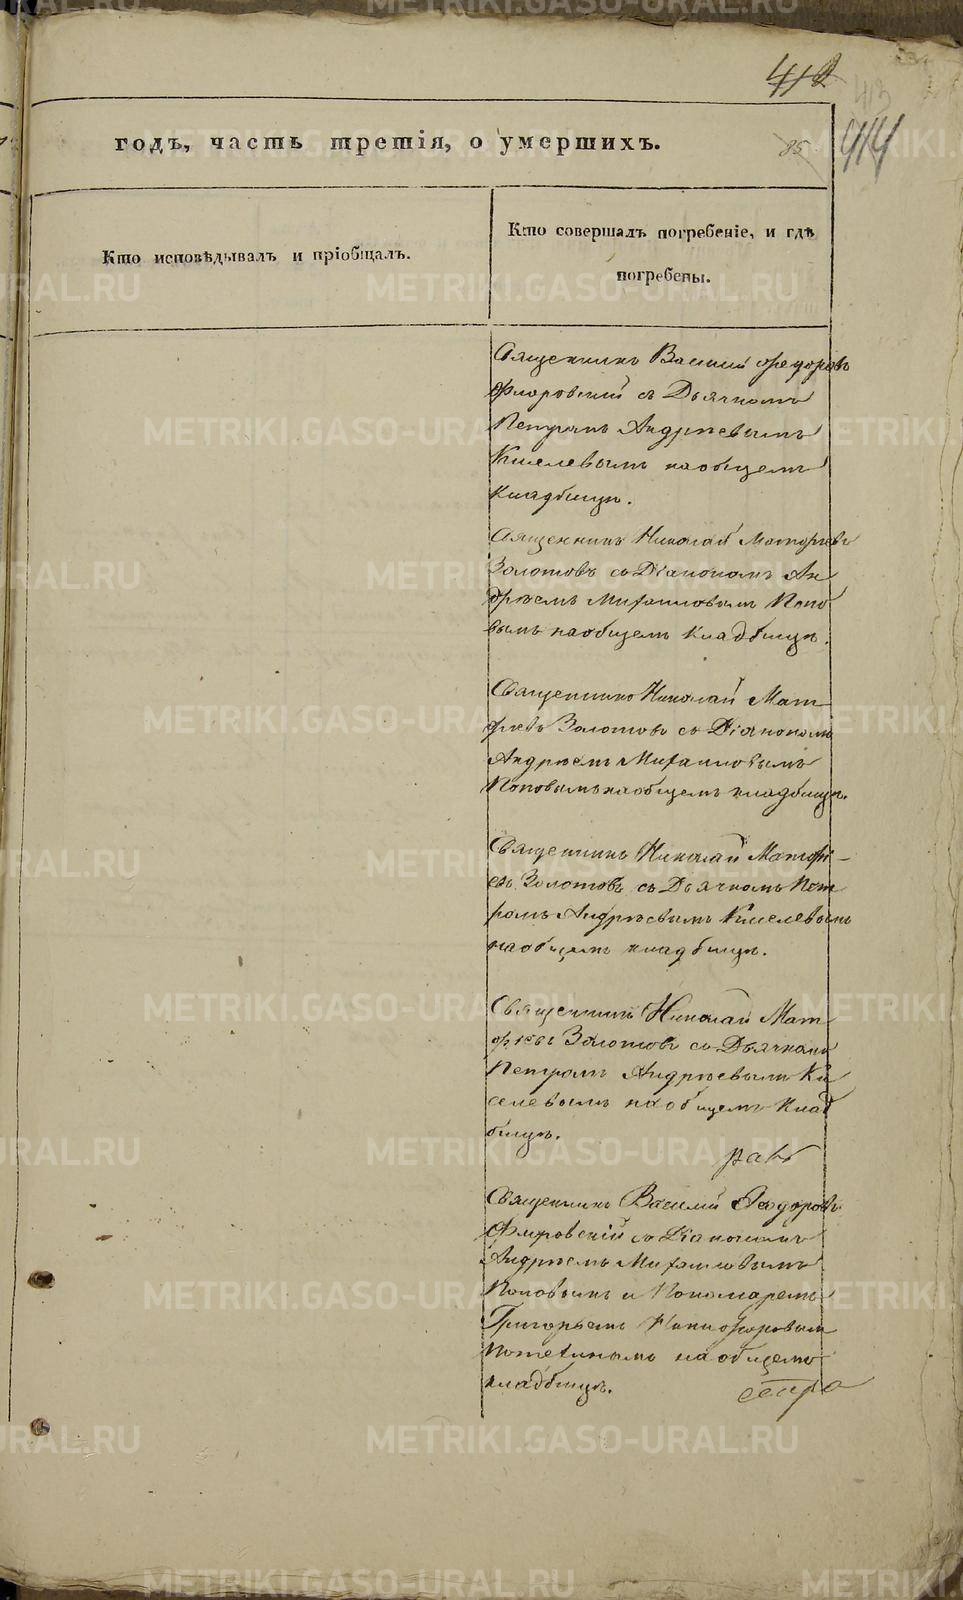 412
413
414
годъ, часть третія, о умершихъ.
85
Кто исповѣдывалъ и пріобщалъ.
Кто совершалъ погребеніе, и гдѣ
погребены.
Священникъ Василий Ѳедоровъ
Флоровский съ Дьячкомъ
Петромъ Андрѣевымъ
Киселевымъ наобщемъ
кладбищѣ.
Священникъ Николай Матфѣевъ
Золотовъ съ Діакономъ Ан
дрѣемъ Михаиловымъ Попо
вымъ наобщемъ кладбищѣ.
Священникъ Николай Мат
фѣевъ Золотовъ съ Діакономъ
Андрѣемъ Михаиловымъ
Поповымъ наобщемъ кладбищѣ.
Священникъ Николай Матфѣ-
евъ Золотовъ съ Дьячкомъ Пет
ромъ Андрѣевымъ Киселевымъ
наобщемъ кладбищѣ.
Священникъ Николай Мат
фѣевъ Золотовъ съ Дьячкомъ
Петромъ Андрѣевымъ Ки
селевымъ наобщемъ клад
бищѣ.
Священникъ Василий Ѳеодоровъ
Флоровский съ Діакономъ
Андрѣемъ Михаиловымъ
Поповымъ и Пономаремъ
Григорьемъ Никифоровым
наобщемъ
кладбищѣ.
METRIKI.GASO-URAL.RU